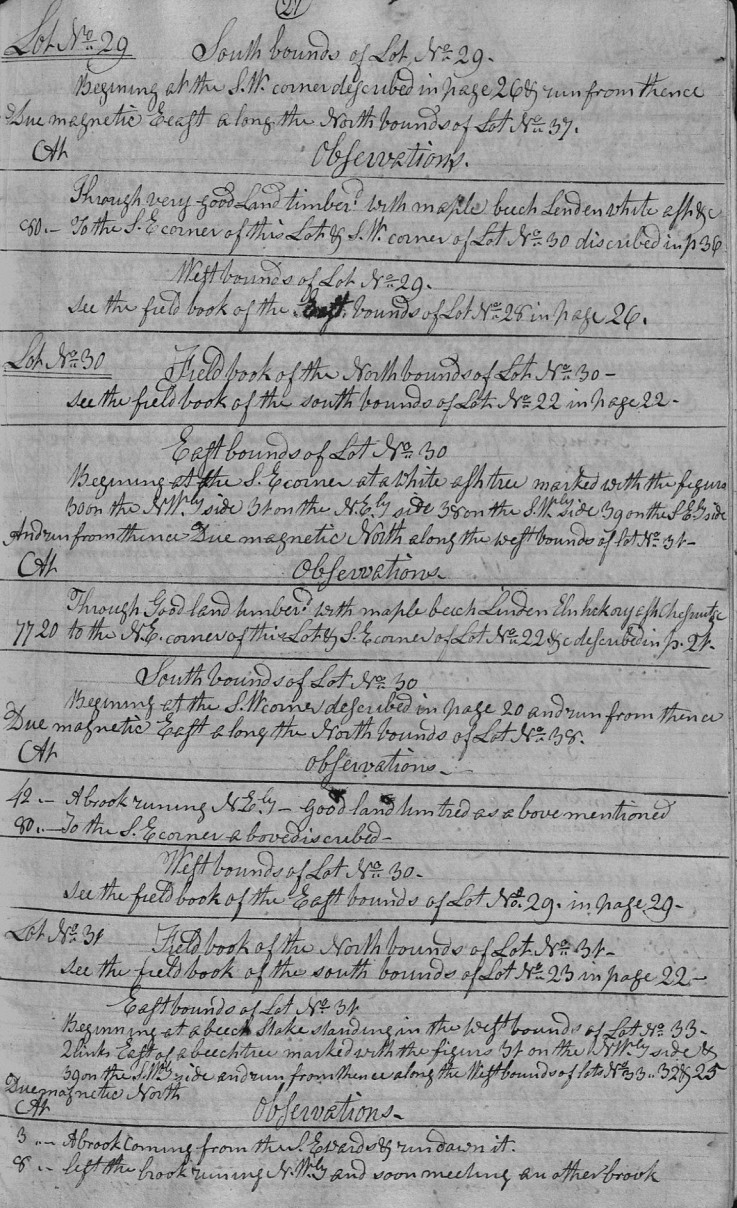 27
Lot No. 29 South bounds of Lot No. 29.
Begining at the S.W. corner described in page 26 & run from thence
Due magnetic Eeast along the North bounds of Lot No. 37.
Ch Observations.
Through very good Land timberd with maple beech Lenden white ash &c
80.- To the S.E corner of this Lot & S.W. corner of Lot No. 30 discribed in p 36
West bounds of Lot No. 29.
see the field book of the East bounds of Lot No. 28 in page 26.
Lot No. 30 Field book of the North bounds of Lot No. 30 -
see the field book of the south bounds of Lot No. 22 in page 22 -
East bounds of Lot No. 30
Begining at the S.E corner at a White ash tree marked with the figure
30 on the N.Wly side 31 on the N.Ely side 38 on the S.Wly side 39 on the S.Ely side
And run from thence Due magnetic North along the west bounds of lot No. 31 -
Ch Observations
Through Good land timberd with maple beech Linden Elm hickory ash Chesnut &c
77 20 to the N.E. corner of this Lot & S.E corner of Lot No. 22 &c described in p. 21 -
South bounds of Lot No. 30
Begining at the S.W corner described in page 20 and run from thence
Due magnetic East along the North bounds of Lot No. 38.
Ch Observations -
42 .- A brook runing N.Ely - good land timbred as above mentioned
80 .- To the S.E corner above discribed -
West bounds of Lot No. 30 -
see the field book of the East bounds of Lot No. 29. in page 29 -
Lot No. 31 Field book of the North bounds of Lot No. 31 -
see the field book of the south bounds of Lot No. 23 in page 22 -
East bounds of Lot No. 31
Beginning at a beech Stake standing in the west bounds of Lot No. 33 -
2 links East of a beech tree marked with the figure 31 on the N.Wly side &
39 on the S.Wly side and run from thence along the West bounds of lots No. 33 .. 32 & 25
Due magnetic North
Ch Observations -
3 .- A brook coming from the S.Ewards & run down it.
8 .- left the brook runing N.Wly and soon meeting an other brook